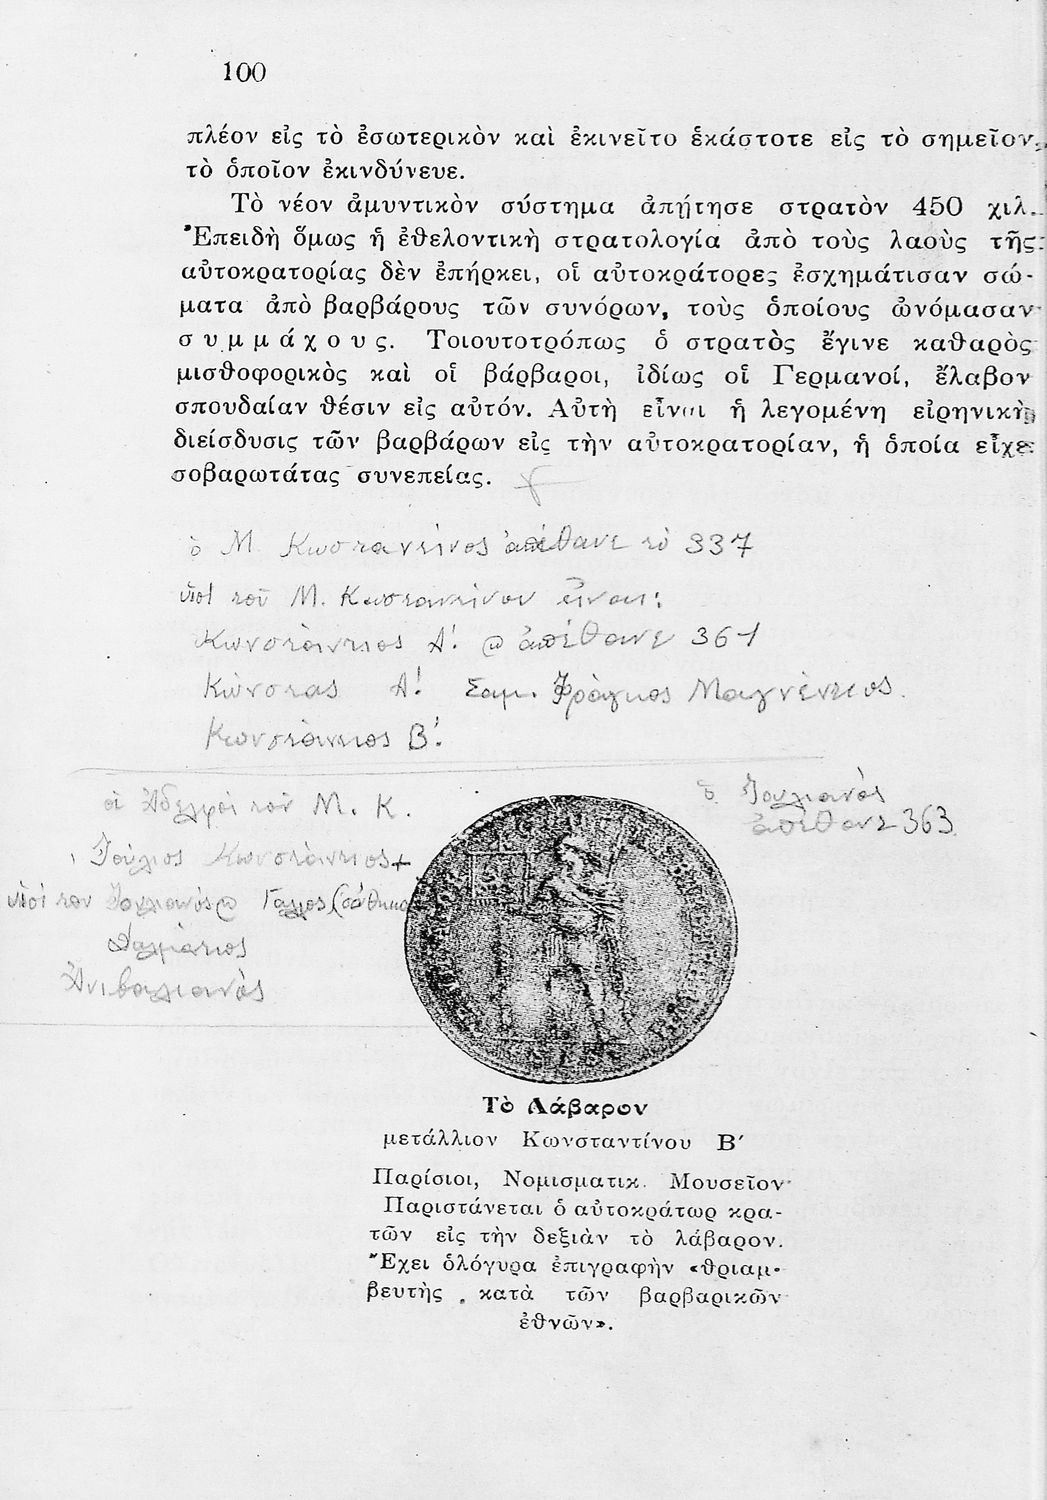 100
πλέον εἰς τὸ ἐσωτερικὸν καὶ ἐκινεῖτο ἑκάστοτε εἰς τὸ σημεῖον,
τὸ ὁποῖον ἐκινδύνευε.
Τὸ νέον ἀμυντικὸν σύστημα ἀπῄτησε στρατὸν 450 χιλ.
Ἐπειδὴ ὅμως ἡ ἐθελοντικὴ στρατολογία ἀπὸ τοὺς λαοὺς τῆς
αὐτοκρατορίας δὲν ἐπήρκει, οἱ αὐτοκράτορες ἐσχημάτισαν σώ-
ματα ἀπὸ βαρβάρους τῶν συνόρων, τοὺς ὁποίους ὠνόμασαν
συμμάχους. Τοιουτοτρόπως ὁ στρατὸς ἔγινε καθαρῶς
μισθοφορικὸς καὶ οἱ βάρβαροι, ἰδίως οἱ Γερμανοί, ἔλαβον
σπουδαίαν θέσιν εἰς αὐτόν. Αὐτὴ εἶναι ἡ λεγομένη εἰρηνικὴ
διείσδυσις τῶν βαρβάρων εἰς τὴν αὐτοκρατορίαν, ἡ ὁποία εἶχε
σοβαρωτάτας συνεπείας.
ὁ Μ. Κωσταντίνος ἀπέθανε τὸ 337
υἱοὶ τοῦ Μ. Κωσταντίνου εἶναι:
Κωνστάντιος Α΄. ἀπέθανε 361
Κώνστας Α΄. Φράγκος Μαγνέντιος.
Κωνστάντιος Β΄.
οἱ Ἀδελφοὶ τοῦ Μ. Κ.
Ἰούλιος Κωνστάντιος +
υἱοὶ του Ἰουλιανός Γαλλος
Δαλμάτιος
Ἀνιβαλιανὸς
ὁ Ἰουλιανὸς
ἀπέθανε 363
Τὸ Λάβαρον
μετάλλιον Κωνσταντίνου Β΄
Παρίσιοι, Νομισματικ. Μουσεῖον
Παριστάνεται ὁ αὐτοκράτωρ κρα-
τῶν εἰς τὴν δεξιὰν τὸ λάβαρον.
Ἔχει ὁλόγυρα ἐπιγραφὴν «θριαμ-
βευτὴς κατὰ τῶν βαρβαρικῶν
ἐθνῶν».